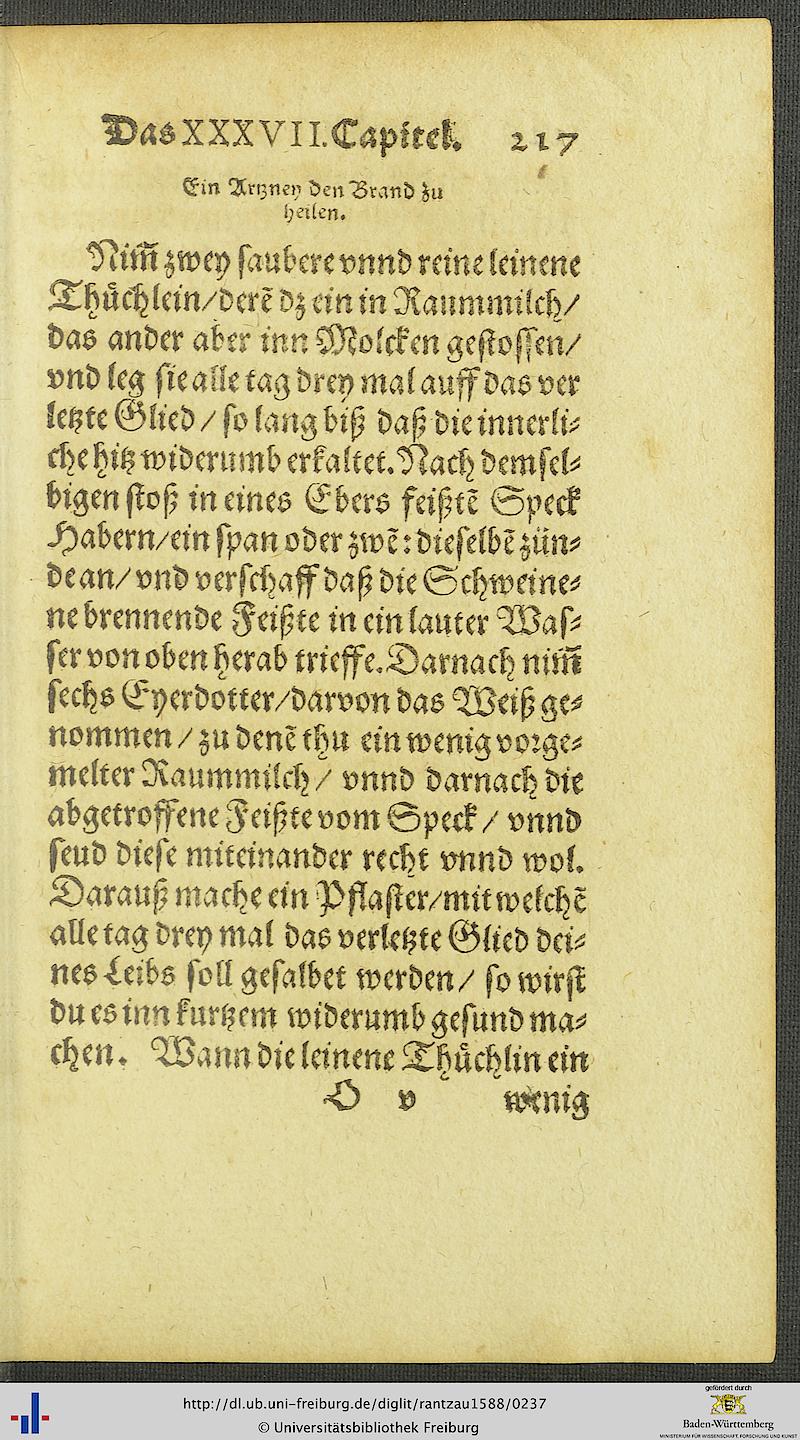 Das XXXVII. Capitel. 217
Ein Artzney den Brand zu
heilen.
Nim̃ zwey saubere vnnd reine leinene
Thuͤchlein/derẽ dz ein in Raummilch/
das ander aber inn Molcken gestossen/
vnd leg sie alle tag drey mal auff das ver
letzte Glied / so lang biß daß die innerli⸗
che hitz widerumb erkaltet. Nach demsel⸗
bigen stoß in eines Ebers feißtẽ Speck
Habern/ein span oder zwẽ: dieselbẽ zün⸗
de an/ vnd verschaff daß die Schweine⸗
ne brennende Feißte in ein lauter Was⸗
ser von oben herab trieffe. Darnach nim̃
sechs Eyerdotter/darvon das Weiß ge⸗
nommen / zu denẽ thu ein wenig vorge⸗
melter Raummilch / vnnd darnach die
abgetroffene Feißte vom Speck / vnnd
seud diese miteinander recht vnnd wol.
Darauß mache ein Pflaster/mit welchẽ
alle tag drey mal das verletzte Glied dei⸗
nes Leibs soll gesalbet werden / so wirst
du es inn kurtzem widerumb gesund ma⸗
chen. Wann die leinene Thuͤchlin ein
O v wenig
http://dl.ub.uni-freiburg.de/diglit/rantzau1588/0237
© Universitätsbibliothek Freiburg
gefördert durch
Baden-Württemberg
MINISTERIUM FÜR WISSENSCHAFT, FORSCHUNG UND KUNST